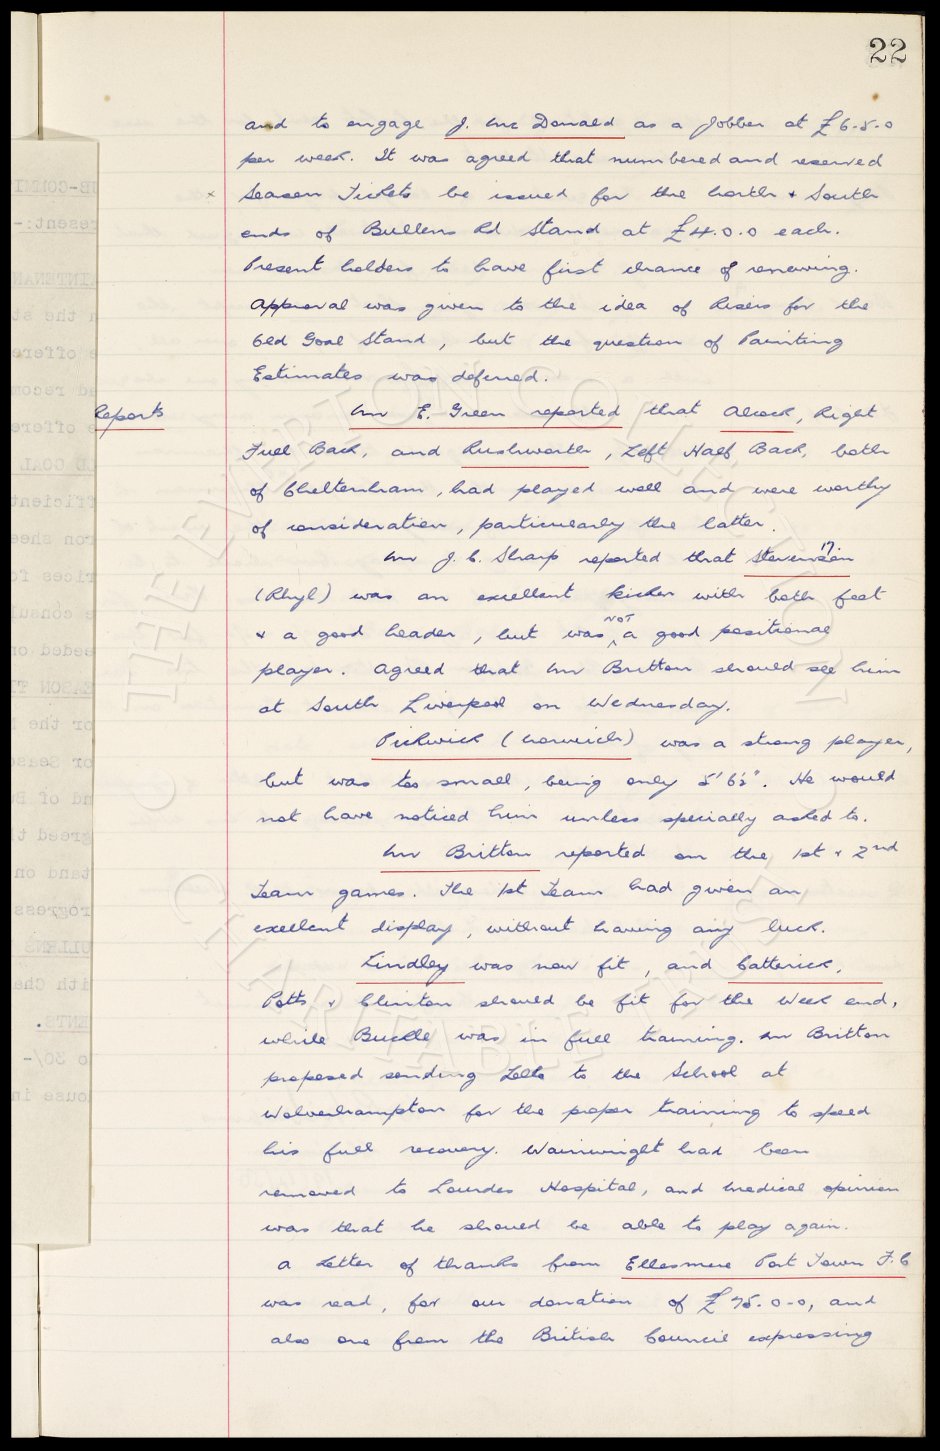 22
and to engage J. Mc Donald as a Jobber at £6-5-0
per week. It was agreed that numbered and reserved
x Season Tickets be issued for the North & South
ends of Bullens Rd Stand at £4.0.0 each.
Present holders to have first chance of renewing.
Approval was given to the idea of Risers for the
Old Goal Stand, but the question of Painting
Estimates was deferred.
Reports Mr E. Green reported that Alcock, Right
Full Back, and Rushworth, Left Half Back, both
of Cheltenham, had played well and were worthy
of consideration, particularly the latter.
Mr J. C. Sharp reported that Stevenson
(Rhyl) was an excellent kicker with both feet
& a good header, but was NOT a good positional
player. Agreed that Mr Britton should see him
at South Liverpool on Wednesday.
Pickwick (Norwich) was a strong player,
but was too small, being only 5' 6½". He would
not have noticed him unless specially asked to.
Mr Britton reported on the 1st & 2nd
Team games. The 1st Team had given an
excellent display, without having any luck.
Lindley was now fit, and Catterick,
Potts, & Clinton should be fit for the Week end,
while Buckle was in full training. Mr Britton
proposed sending Lello to the School at
Wolverhampton for the proper training to speed
his full recovery. Wainwright had been
removed to Lourdes Hospital, and medical opinion
was that he should be able to play again.
A Letter of thanks from Ellesmere Port Town F.C
was read, for our donation of £75.0-0, and
also one from the British Council expressing
THE EVERTON COLLECTION
CHARITABLE TRUST